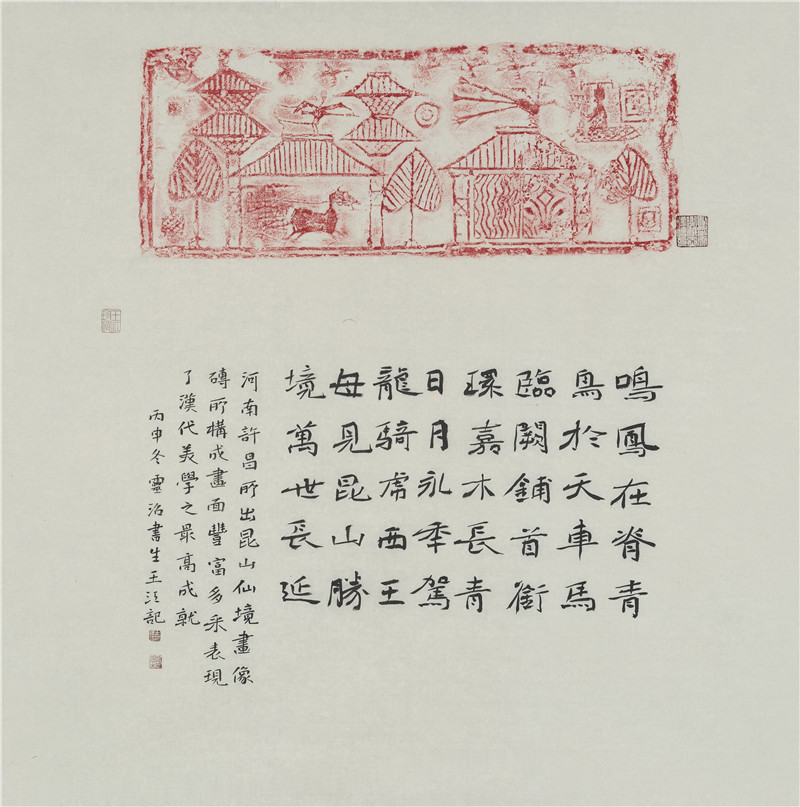 鳴鳳在脊青
鳥於天車馬
臨闕鋪首銜
環嘉木長青
日月永秊駕
龍騎虎西王
母見昆山勝
境萬世長延
河南許昌所出昆山仙境畫像
磚所構成畫面豐富多采表現
了漢代美學之最高成就
丙申冬靈書生王記